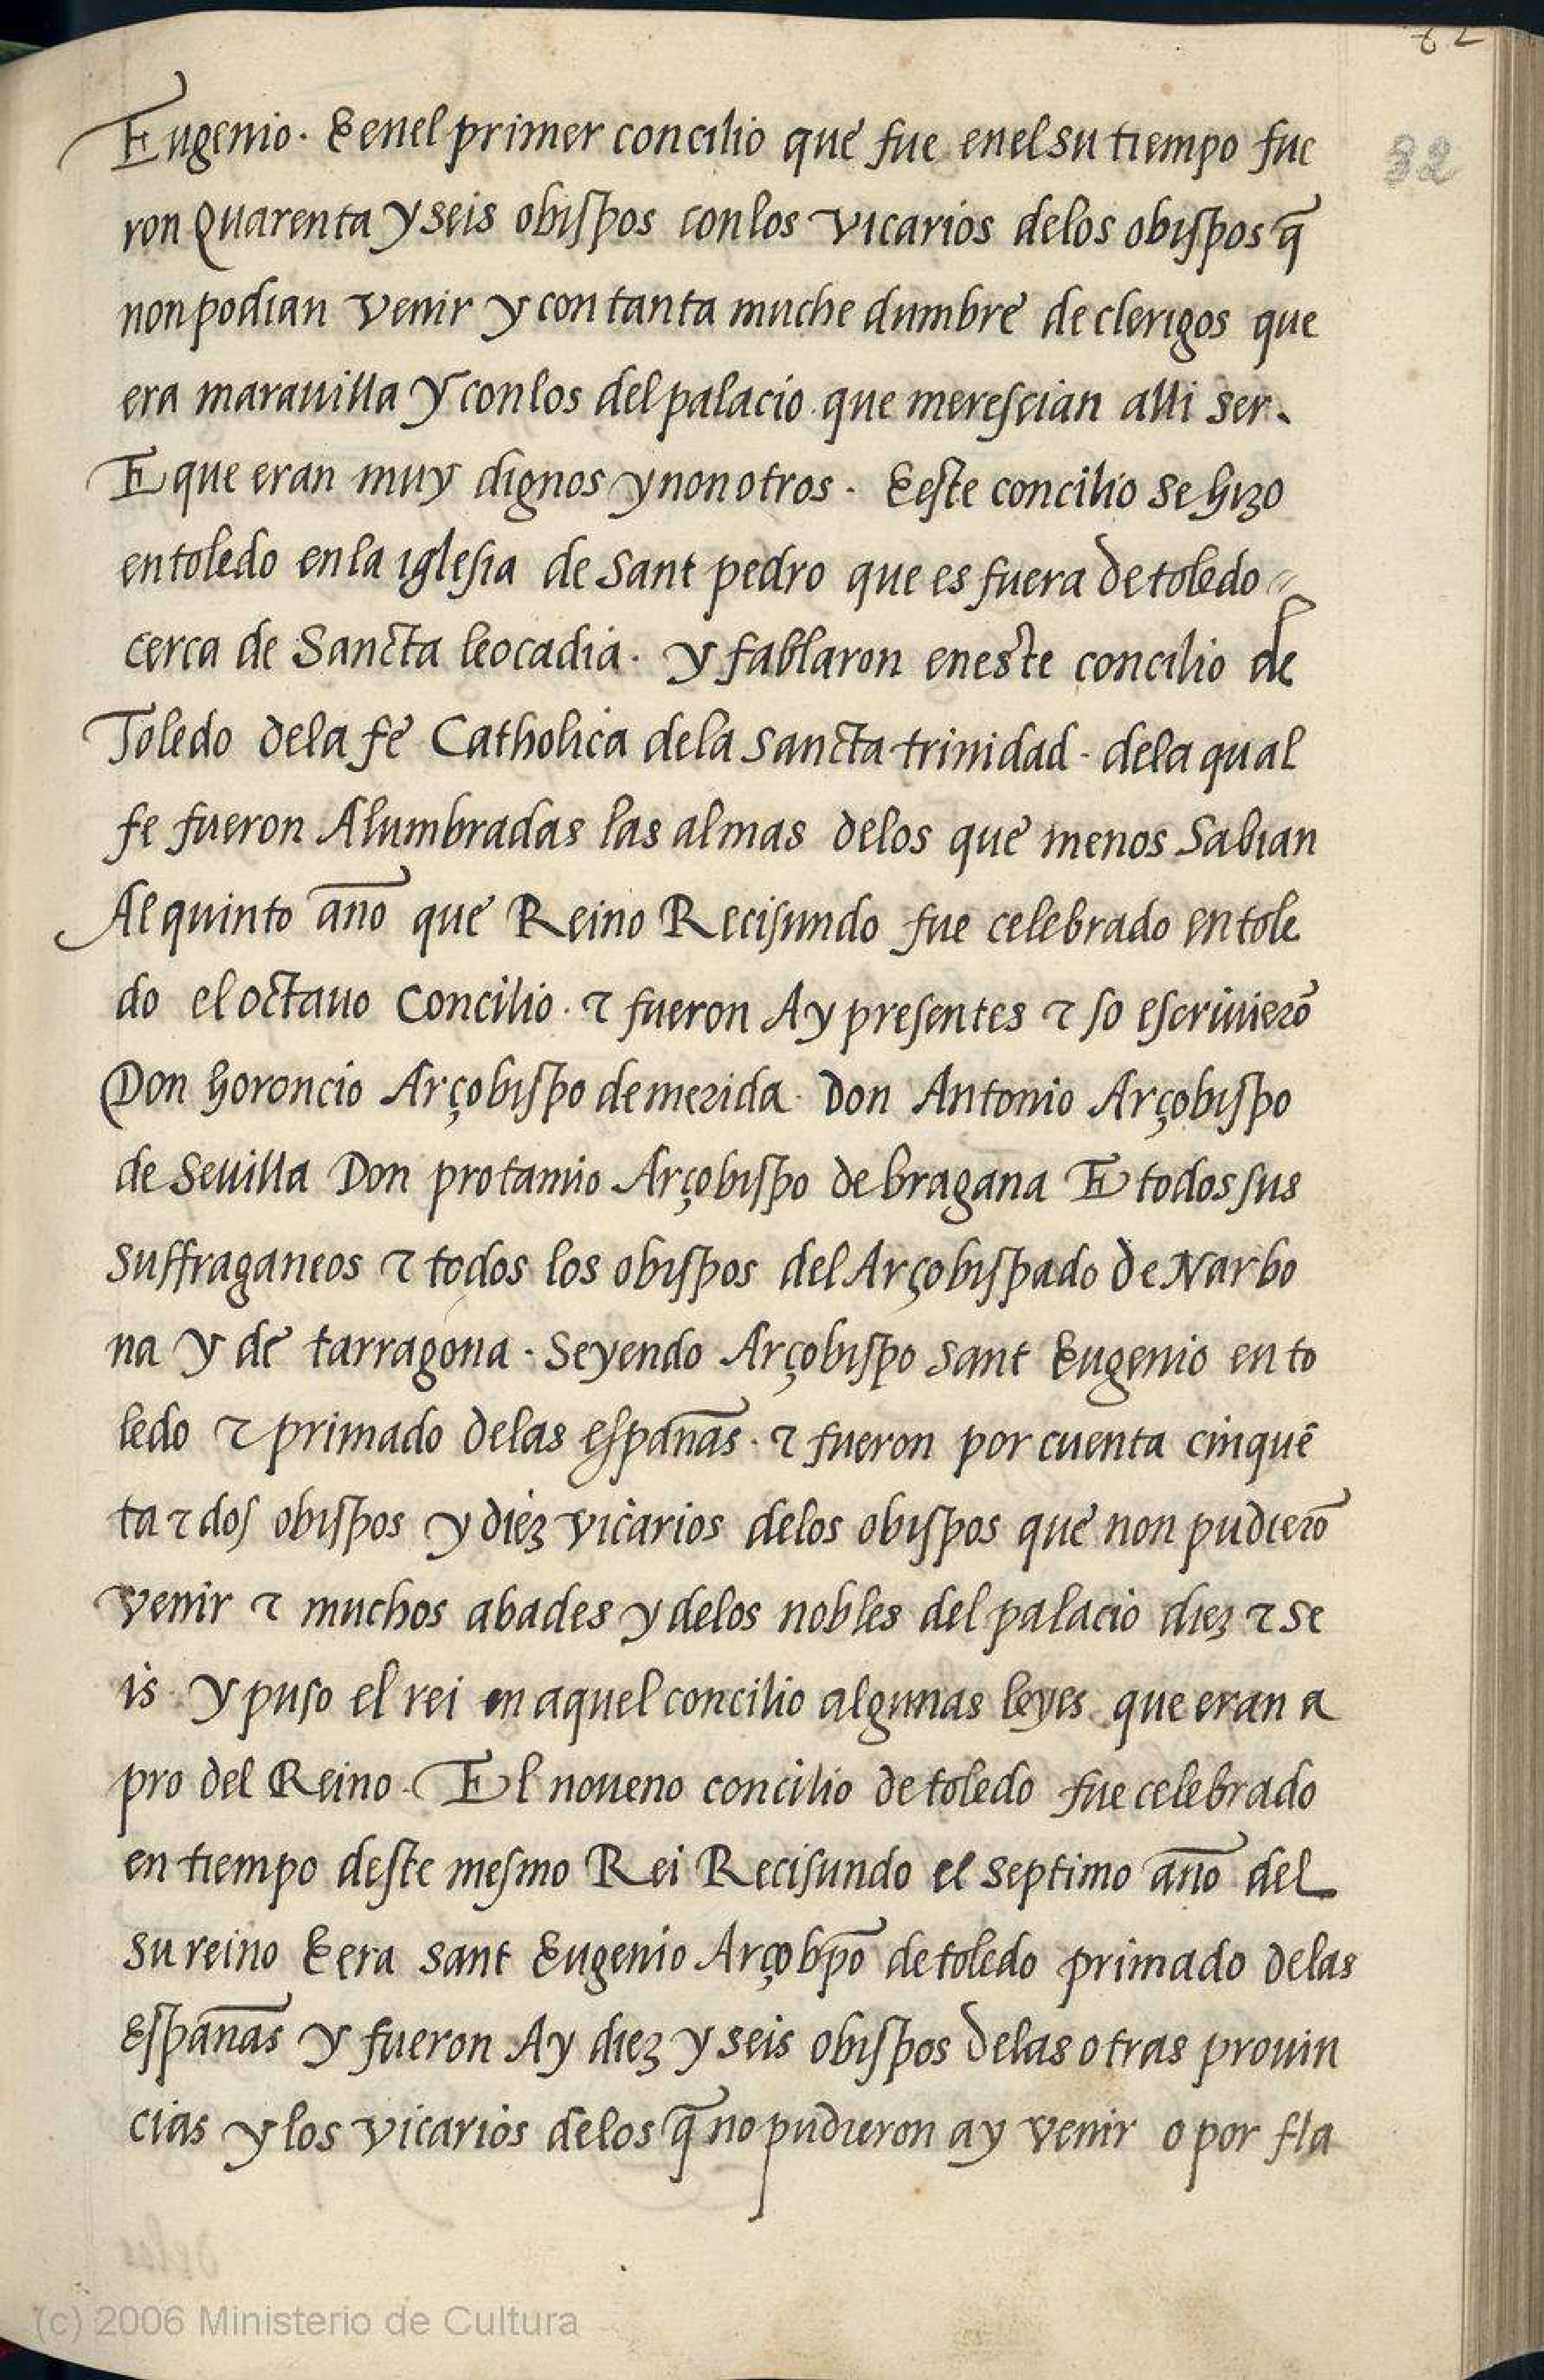 82
32
Eugenio. E enel primer concilio que fue enel su tiempo fue
ron Quarenta y seis obispos con los vicarios delos obispos q̃
non podian venir y con tanta muche dumbre de clerigos que
era marauilla y con los del palacio que meresçian alli ser.
E que eran muy dignos y non otros. E este concilio se hizo
en toledo en la iglesia de Sant pedro que es fuera de toledo
cerca de Sancta leocadia. y fablaron en este concilio de
Toledo dela fe Catholica dela Sancta trinidad. dela qual
fe fueron Alumbradas las almas delos que menos Sabian
Al quinto año que Reino Recisundo fue celebrado en tole
do el octauo Concilio. ⁊ fueron Ay presentes ⁊ so escriuierõ
Don horoncio Arçobispo de merida. Don Antonio Arçobispo
de Seuilla Don protamio Arçobispo de bragana E todos sus
Suffraganeos ⁊ todos los obispos del Arçobispado de Narbo
na y de tarragona. Seyendo Arçobispo Sant Eugenio en to
ledo ⁊ primado delas españas. ⁊ fueron por cuenta cinquẽ
ta ⁊ dos obispos y diez vicarios delos obispos que non pudierõ
venir ⁊ muchos abades y delos nobles del palacio diez ⁊ se
is. y puso el rei en aquel concilio algunas leyes que eran a
pro del Reino. El noueno concilio de toledo fue celebrado
en tiempo deste mesmo Rei Recisundo el septimo año del
su reino E era Sant Eugenio Arçobp̃o de toledo primado delas
Españas y fueron Ay diez y seis obispos delas otras prouin
cias y los vicarios delos q̃ no pudieron ay venir o por fla
delos
(c) 2006 Ministerio de Cultura